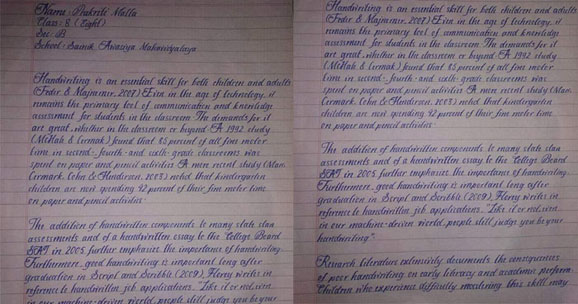 Name: Prakriti Malla
Class: 8 (Eight)
Sec: B
School: Sainik Awasiya Mahavidyalaya
Handwriting is an essential skill for both children and adults
(Feder & Majnemer, 2007) Even in the age of technology, it
remains the primary tool of communication and knowledge
assessment for students in the classroom. The demands for it
are great, whether in the classroom or beyond. A 1992 study
(McHale & Cermak) found that 85 percent of all fine motor
time in second- fourth- and sixth- grade classrooms was
spent on paper and pencil activities. A more recent study (Marr,
Cermark, Cohn & Henderson, 2003) noted that kindergarten
children are now spending 42 percent of their fine motor time
on paper and pencil
The addition of handwritten components to many state
assessments and of a handwritten essay to the "College Board
SAT in 2005 further emphasize the importance of handwriting.
Furthermore, good handwriting is important long after
graduation in Script and Scribble (2009), Florey writes in
reference to handwritten job applications. "Like it or not, even
in our machine-driven world, people still judge you by your
Handwriting is an essential skill for both children and adults
(Feder & Majnemer, 2007) Even in the age of technology, it
remains the primary tool of communication and knowledge
assessment for students in the classroom. The demands for it
are great, whether in the classroom or beyond. A 1992 study
(McHale & Cermak) found that 85 percent of all fine motor
time in second- fourth- and sixth- grade classrooms was
spent on paper and pencil activities. A more recent study (Marr,
Cermark, Cohn & Henderson, 2003) noted that kindergarten
children are now spending 42 percent of their fine motor time
on paper and pencil activities
The addition of handwritten components to many state
assessments and of a handwritten essay to the College Board
SAT in 2005 further emphasize the importance of handwriting.
Furthermore, good handwriting is important long after
graduation in Script and Scribble (2009), Florey writes in
reference to handwritten job applications, "Like it or not, even
in our machine-driven world, people still judge you by your
handwriting."
Research Literature extensively documents the consequences
of poor handwriting on early literacy and academic perform
Children who experience difficulty mastering this skill may